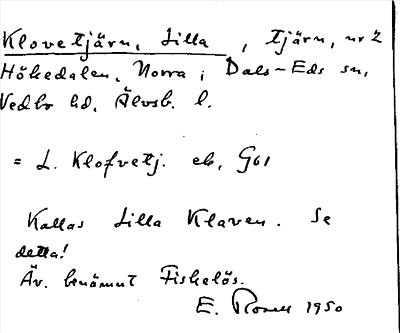 Klovetjärn, Lilla, tjärn, nr 2
Hökedalen, Norra i Dals-Eds sn,
Vedbo hd, Älvsb. l.
= L. Klofvetj. ek, G61
Kallas Lilla Klaven. Se
detta!
Äv. benämnt Fiskelös.
E. 1950